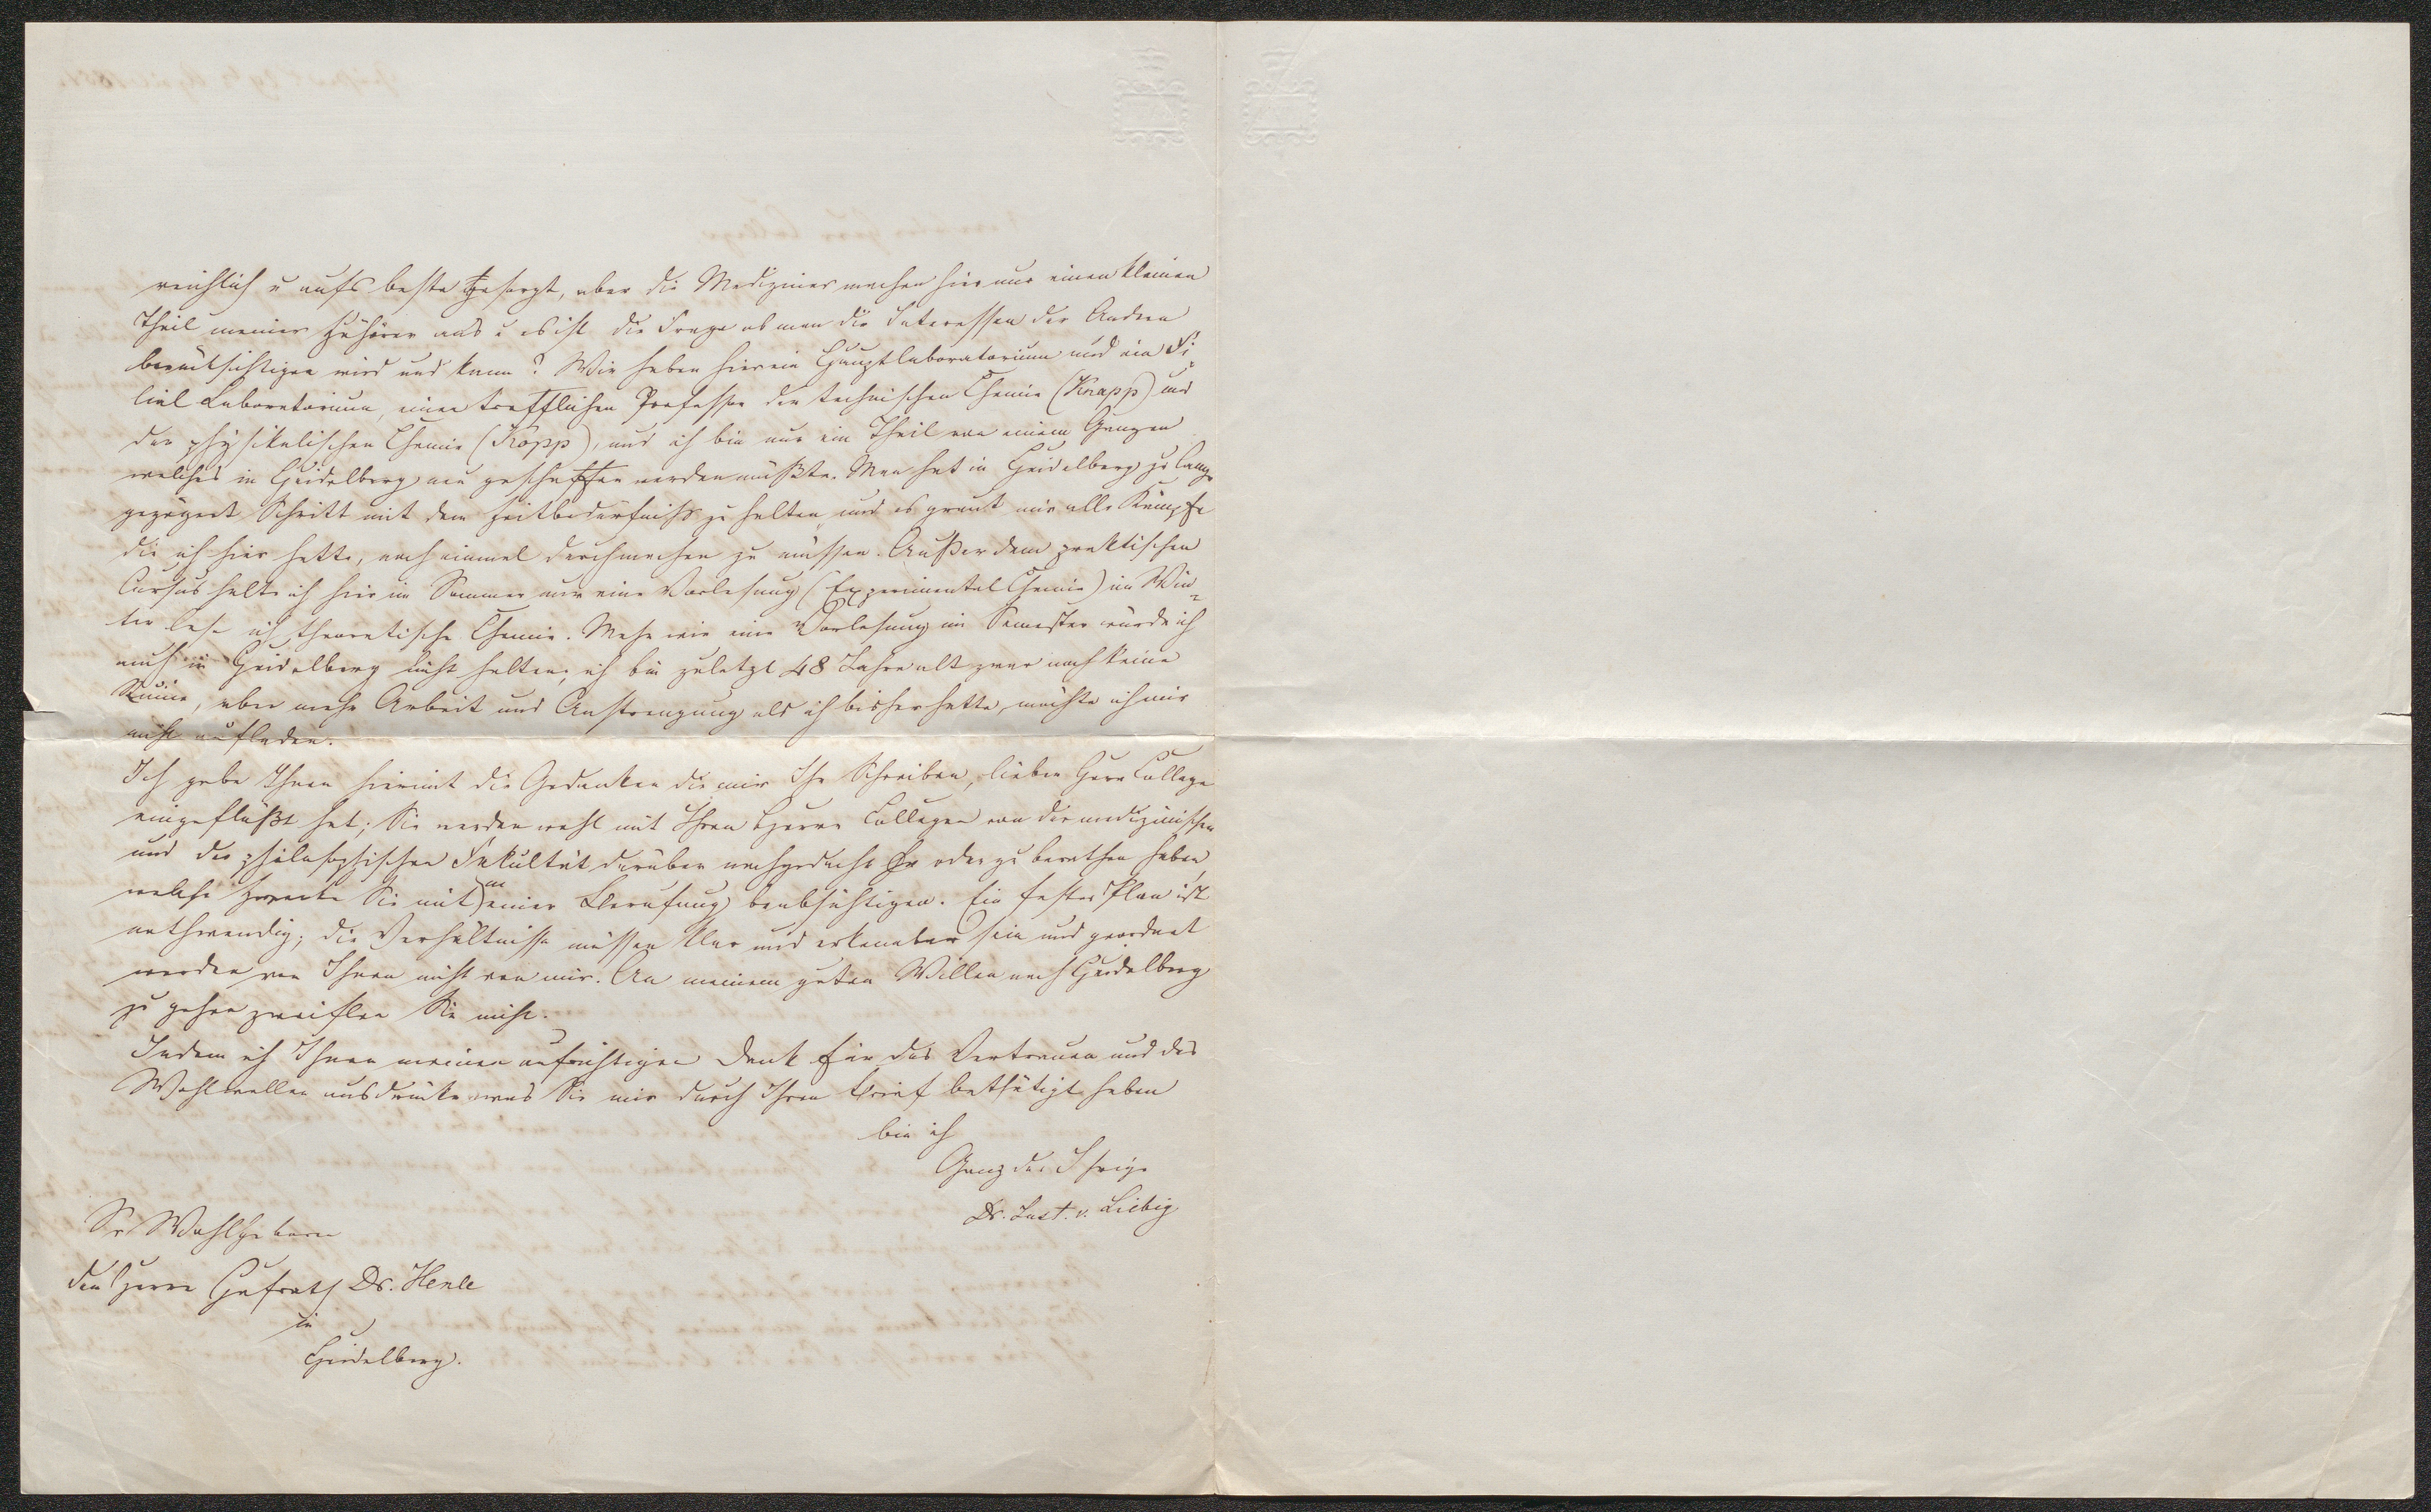 reichlich u aufs beste gesorgt, aber die Mediziner machen hier nur einen kleinen
Theil meiner Zuhörer aus u es ist die Frage ob man die Interessen der Andern
berücksichtigen wird und kann? Wir haben hier ein Hauptlaboratorium und ein Fi-
lial Laboratorium, einen trefflichen Professor der technischen Chemie (Knapp) und
der physikalischen Chemie (Kopp), und ich bin nur ein Theil von einem Ganzen
welches in Heidelberg neu geschaffen werden müßte. Man hat in Heidelberg zu lange
gezögert Schritt mit dem Zeitbedürfniß zu halten und es graut mir alle Kämpfe
die ich hier hatte, noch einmal durchmachen zu müssen. Außer dem praktischen
Cursus halte ich hier im Sommer nur eine Vorlesung (Experimental Chemie) im Win-
ter lese ich theoretische Chemie. Mehr wie eine Vorlesung im Semester würde ich
auch in Heidelberg nicht halten; ich bin zuletzt 48 Jahre alt zwar noch keine
Ruine, aber mehr Arbeit und Anstrengung als ich bisher hatte, möchte ich mir
nicht aufladen.
Ich gebe Ihnen hiermit die Gedanken die mir Ihr Schreiben, lieber Herr College
eingeflößt hat; Sie werden wohl mit Ihren Herrn Collegen von der medizinischen
und der philosophischen Fakultät darüber nachgedacht oder zu berathen haben,
welche Zwecke Sie mit meiner Berufung beabsichtigen. Ein fester Plan ist
nothwendig; die Verhältnisse müssen klar und erkennbar sein und geordnet
werden von Ihnen nicht von mir. An meinem guten Willen nach Heidelberg
zu gehen zweiflen Sie nicht.
Indem ich Ihnen meinen aufrichtigen Dank für das Vertrauen und das
Wohlwollen ausdrücke was Sie mir durch Ihren Brief bethätigt haben
bin ich
Ganz der Ihrige
Dr. Just. v. Liebig
Sr Wohlgeboren
dem Herrn Hofrath Dr. Henle
in
Heidelberg.